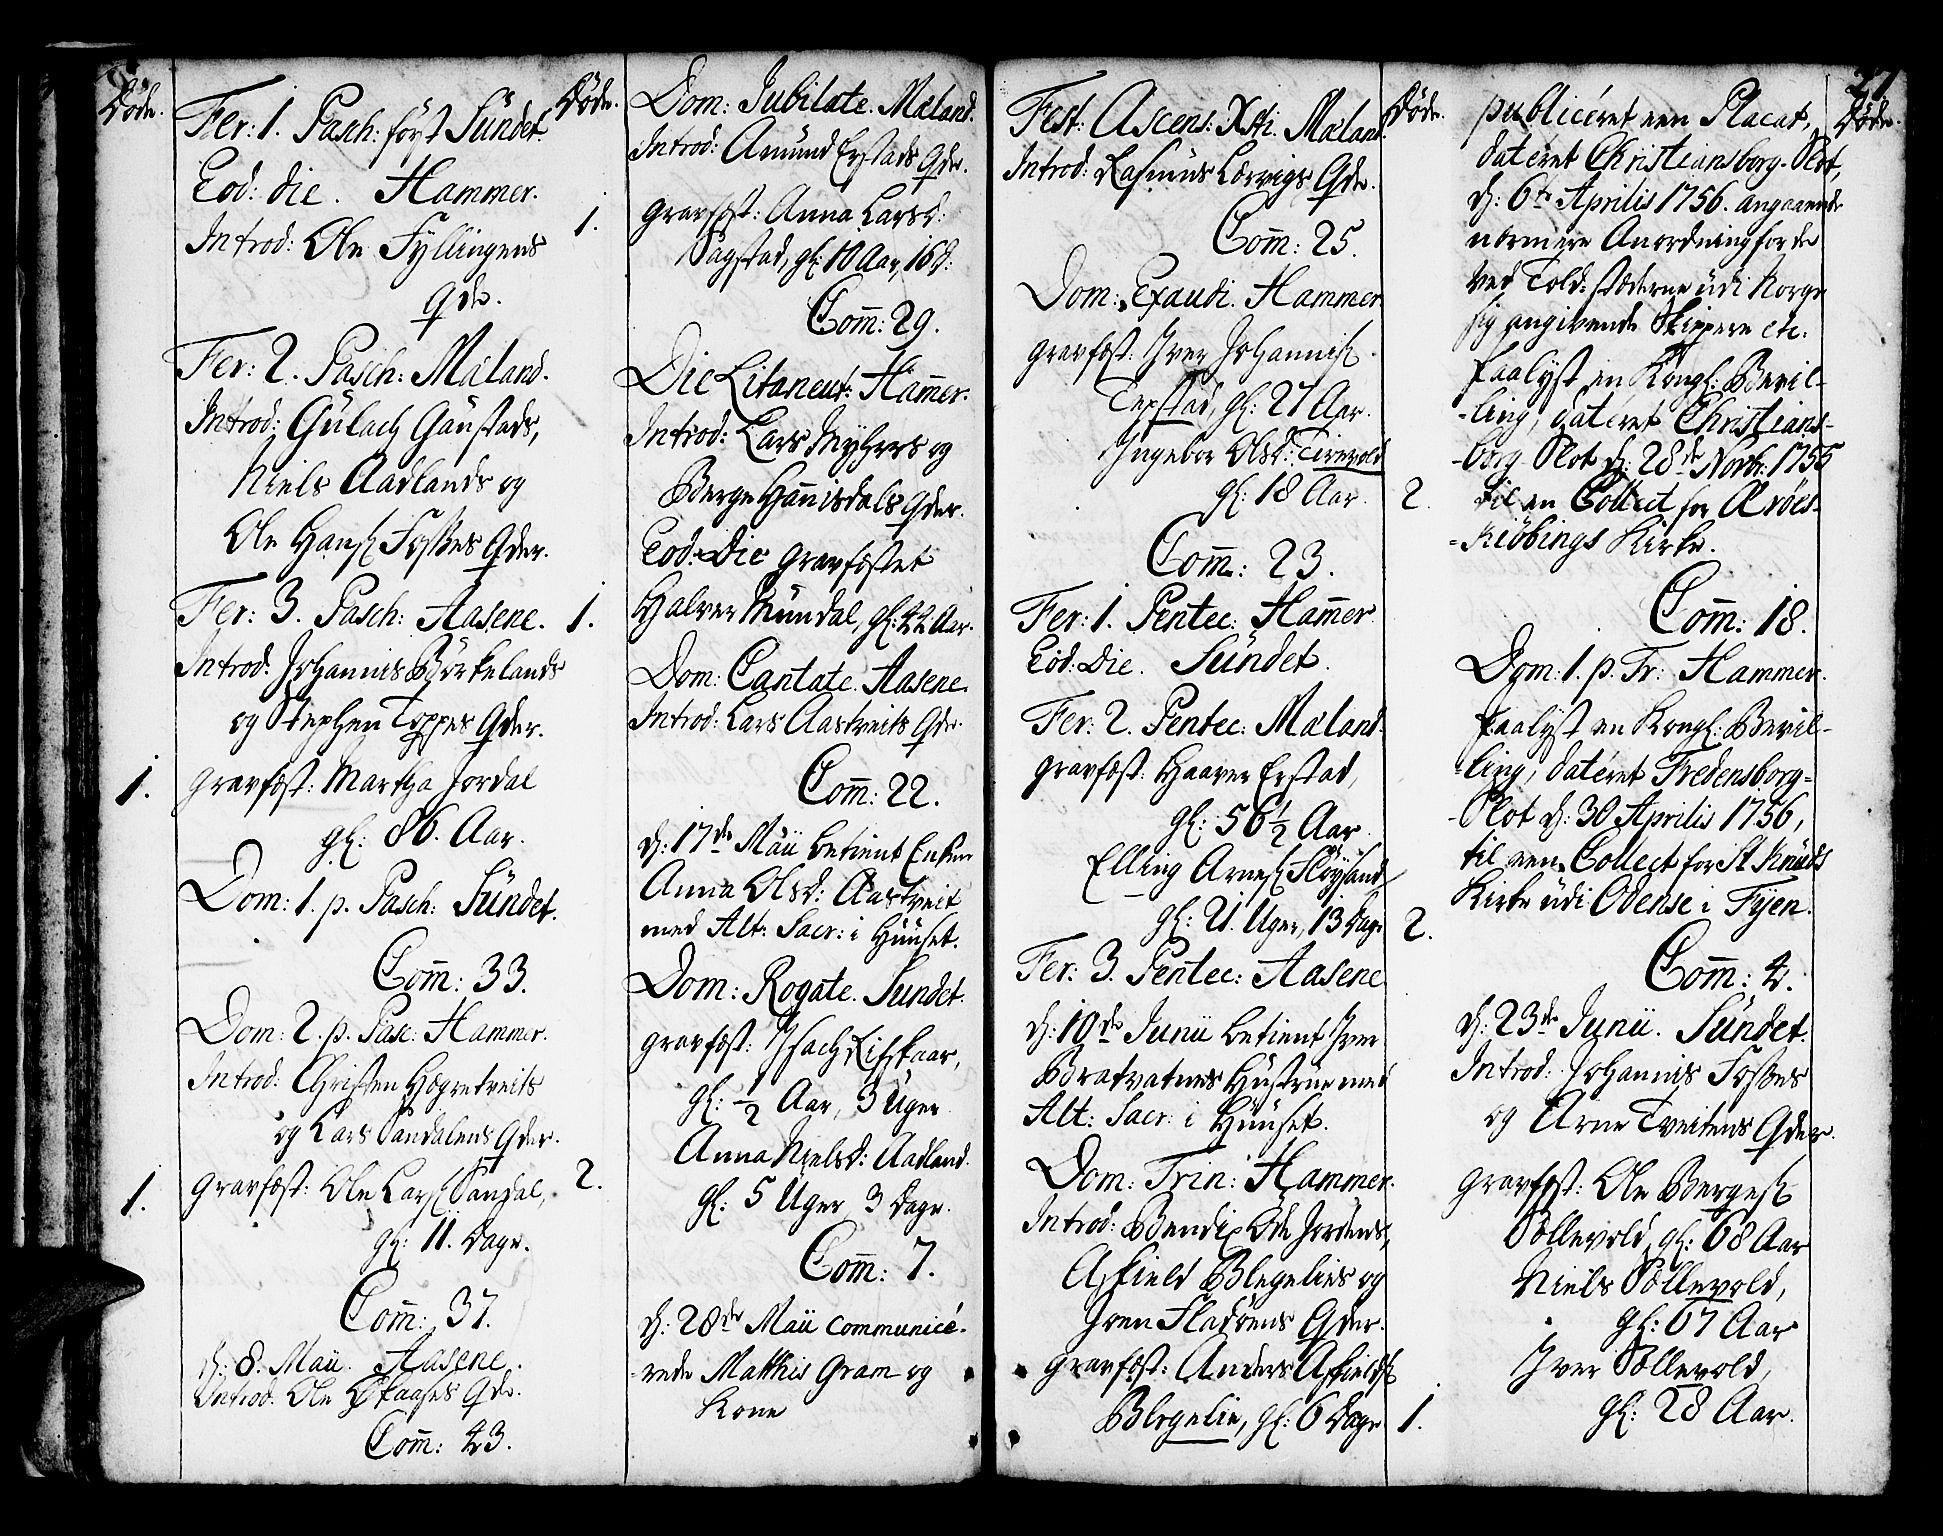 Døde.
Fer: 1. Pasch: först Sündet.
Eod: die. Hammer.
Introd: Ole Fyllingens
Qde.
Fer: 2. Pasch: Mæland.
Introd: Gülach Gaustads,
Niels Aadlands og
Ole Hans: Fosses Qder.
Fer: 3. Pasch: Aasene.
Introd: Johannis Börkelands
og Stephen Toppes Qder.
1. gravfæst: Martha Jordal
gl: 86. Aar.
Dom: 1. p. Pasch: Sündet.
Com̄: 33.
Dom: 2. p. Pasc: Hammer.
Introd: Christen Hogretveits
og Lars Sandalens Qder.
1. gravfæst: Ole Lars: Sandal,
gl: 11. Dage.
Com̄: 37.
d: 8. Maii. Aasene.
Introd: Ole Qde.
Com̄: 43.
Døde.
Dom: Jubilate. Mæland.
Introd: Amünd Erstads Qde.
1. gravfæst: Anna Larsd:
Sagstad, gl: 10 Aar, 16 d:
Com̄: 29.
Die Litaneut: Ham̄er.
Introd: Lars Myhres og
Berge Han̄isdals Qder.
Eod: Die gravfæstet
1. Halver Mündal, gl: 42 Aar.
Dom: Cantate. Aasene.
Introd: Lars Aastveits Qde.
Com̄: 22.
d: 17de Maii betient Enken
Anna Olsd: Aastveit
med Alt: Sacr: i Hüüset.
Dom: Rogate. Sündet.
gravfæst: Isach Risskaar,
gl: ½ Aar, 3 Uger
Anna Nielsd: Aadland.
2.
gl: 5 Uger 3 Dage.
Com̄: 7.
d: 28de Maii communicé-
-rede Matthis Gram og
Kone
Fest: Ascens: Xsti. Mæland.
Introd: Rasmus Lervigs Qde.
Com̄: 25.
Dom: Exaudi. Hammer
gravfæst: Iver Johannis:
Tepstad, gl: 27 Aar.
Ingebor Olsd: Tirevold
gl: 18 Aar. 2.
Com̄: 23.
Fer: 1. Pentec: Ham̄er
Eod: Die. Sündet.
Fer: 2. Pentec: Mæland.
gravfæst: Haaver Erstad,
gl: 56½ Aar
Elling Arnes: Fløysand
gl: 21. Uger, 13 Dage 2.
Fer: 3. Pentec: Aasene
d: 10de Junii betient Iver
Bratvatnes Hüstrüe med
Alt: Sacr: i Hüüset.
Dom: Trin: Hammer.
Introd: Bendix Ode Jordens,
Asfield Blegelies og
Iven Fladöens Qder.
gravfæst: Anders Asfields:
Blegelie, gl: 6 Dage 1.
Døde.
27
Døde.
publicéret een Placat,
datéret Christiansborg-Slot,
d: 6te Aprilis 1756. angaaende
nærmere Anordning for de
ved Told-stæderne üdi Norge
sig angivende Skippere etc:
paalyst en Kongl: Bevil-
-ling, datéret Christians-
-borg Slot d: 28de Novb: 1755
til en Collect for Æröes-
-kiöbings Kirke.
Com̄: 18.
Dom: 1. p. Tr: Hammer.
paalyst en Kongl: Bevil-
-ling, datéret Fredensborg-
-Slot d: 30 Aprilis 1756,
til een Collect for St Knuds
Kirke üdi Odense i Fyen.
Com̄: 4.
d: 23de Junii. Sündet.
Introd: Johannis Fosses
og Arne Tveitens Qder.
gravfæst: Ole Berges:
Söllevold, gl: 68 Aar
Niels Söllevold,
gl: 67 Aar
Iver Söllevold,
gl: 28 Aar.